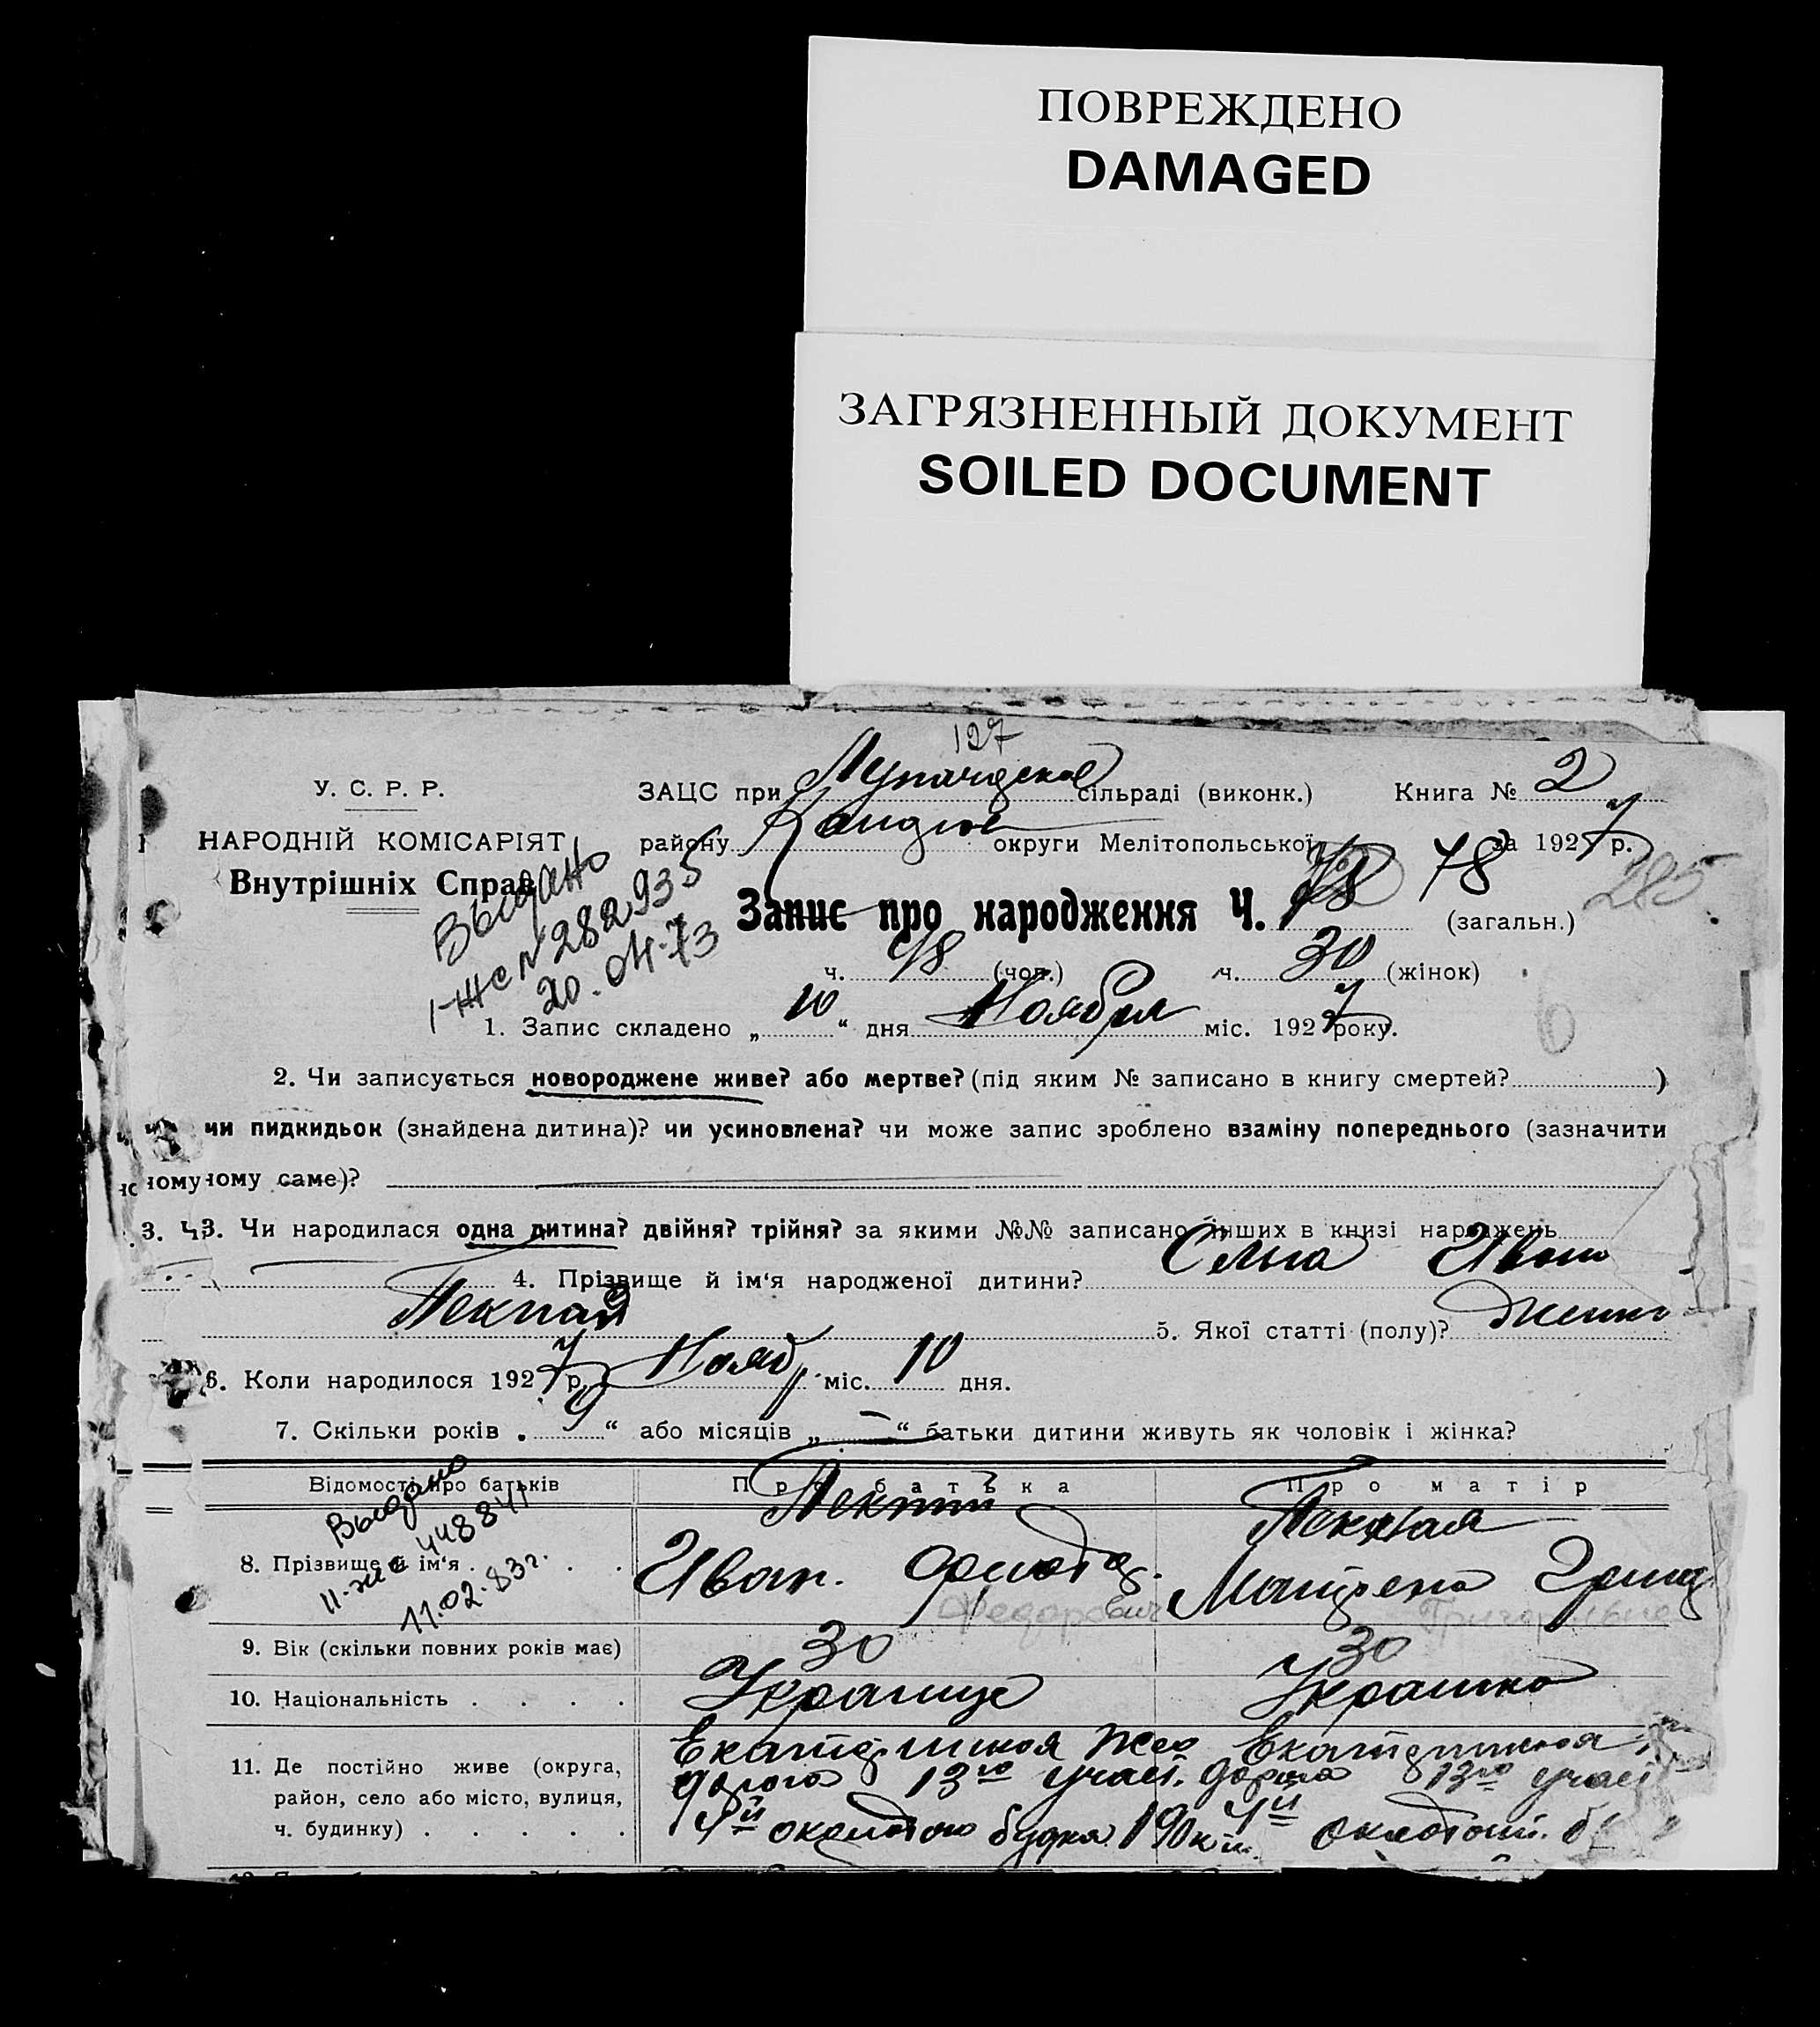 ПОВРЕЖДЕНО
DAMAGED
ЗАГРЯЗНЕННЫЙ ДОКУМЕНТ
SOILED DOCUMENT
127
У. С. Р. Р.
ЗАЦС при сільраді (виконк.) Книга № 2
НАРОДНІЙ КОМІСАРІЯТ
району округи Мелітопольської за 1927 р.
Внутрішніх Справ
285
Выдано
І-ЖС № 282935
20.04.73
Запис про народження Ч. 78 78 (загальн.)
ч. 48 (чол.) ч. 30 (жінок)
6
1. Запис складено „10“ дня Ноября міс. 1927 року.
2. Чи записується новороджене живе? або мертве? (під яким № записано в книгу смертей? )
чи пидкидьок (знайдена дитина)? чи усиновлена? чи може запис зроблено взаміну попереднього (зазначити
чому саме)?
3. Чи народилася одна дитина? двійня? трійня? за якими №№ записано інших в книзі народжень
4. Прізвище й ім‘я народженої дитини? Иван
5. Якої статті (полу)?
6. Коли народилося 1927 р. Нояб міс. 10 дня.
7. Скільки років „9“ або місяців „—“ батьки дитини живуть як чоловік і жінка?
Відомості про батьків Про батька Про матір
Выдано
ІІ-жс 448841
11.02.83г.
8. Прізвище й ім‘я . . . .
Иван.
Матрена Григ
Федорович Григорьевна
9. Вік (скільки повних років має) 30 30
10. Національність . . . . Украинце Украинка
11. Де постійно живе (округа,
район, село або місто, вулиця,
ч. будинку) . . . . .
дорога 13го участ. дорога 13го участ
4й околоток будка 190 км. 4й